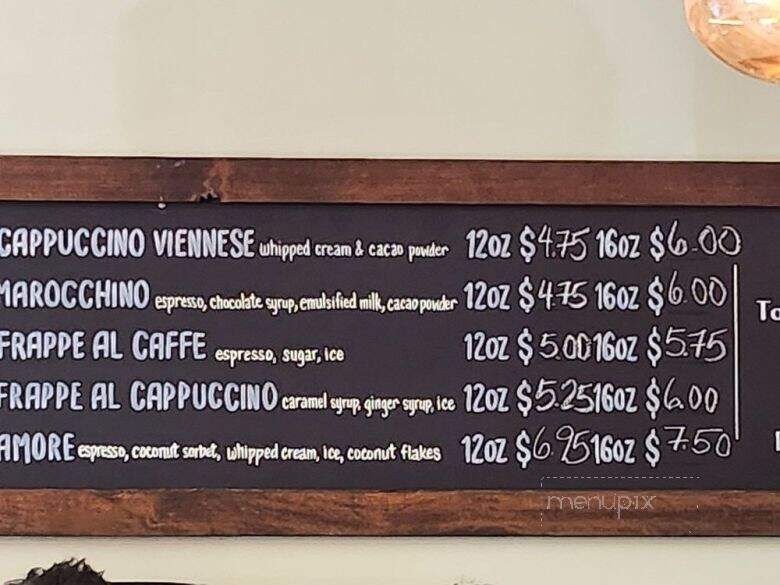 CAPPUCCINO VIENNESE whipped cream & cacao powder 12oz $4.75 16oz $6.00
MAROCCHINO espresso, chocolate syrup, emulsified milk, cacao powder 12oz $4.75 16oz $6.00
FRAPPE AL CAFFE espresso, sugar, ice 12oz $5.00 16oz $5.75
FRAPPE AL CAPPUCCINO caramel syrup, ginger syrup, ice 12oz $5.25 16oz $6.00
AMORE espresso, coconut sorbet, whipped cream, ice, coconut flakes 12oz $6.95 16oz $7.50
menupix